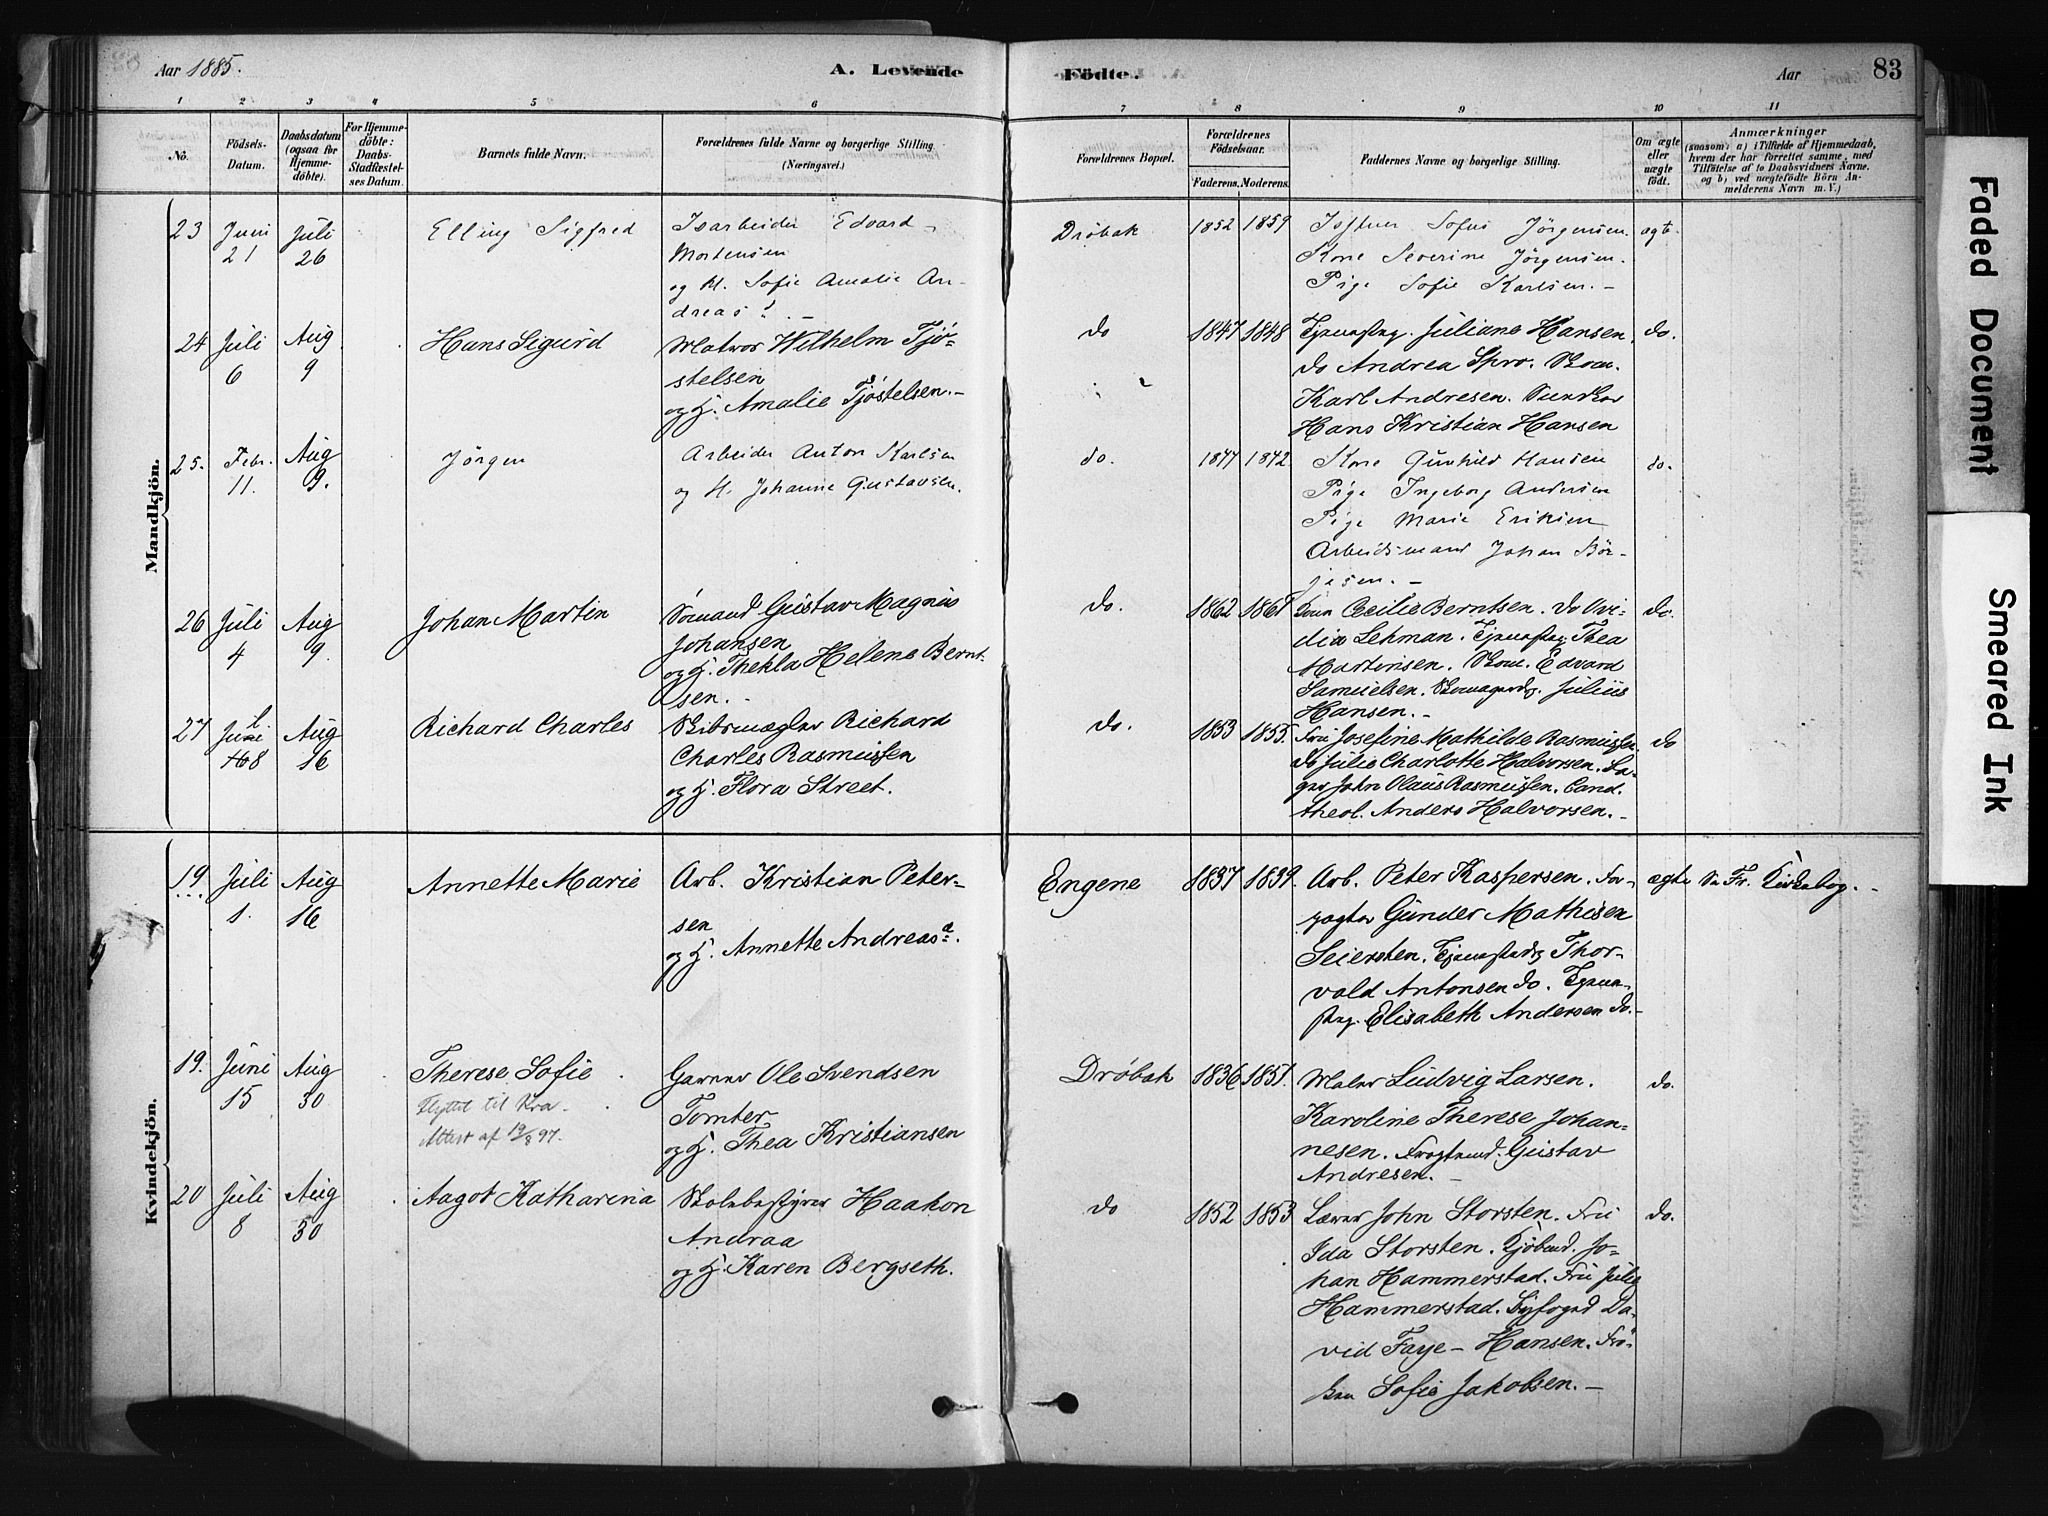 Aar 1885.
A. Levende
Födte.
Aar
83
1 2 3 4 5 6 7 8 9 10 11
No.
Födsels-
Datum.
Daabsdatum
(ogsaa for
Hjemme-
döbte).
For Hjemme-
döbte:
Daabs-
Stadfæstel-
ses Datum.
Barnets fulde Navn.
Forældrenes fulde Navne og borgerlige Stilling.
(Næringsvei.)
Forældrenes Bopæl.
Forældrenes
Födselsaar.
Faderens. Moderens.
Faddernes Navne og borgerlige Stilling.
Om ægte
eller
uægte
födt.
Anmærkninger
(saasom: a) i Tilfælde af Hjemmedaab,
hvem der har forrettet samme, med
Tilföielse af to Daabsvidners Navne,
og b) ved uægtefödte Börn An-
melderens Navn m. V.)
Mandkjön.
23
Juni
21
Juli
26
Elling Sigfred
Isarbeider Edvard
Mortensen
og H. Sofie Amalie An-
dreasd. -
Dröbak
1852 1859
Sofus Jörgensen.
Kone Severine Jörgensen.
Pige Sofie Karlsen. -
ægt.
24
Juli
6
Aug
9
Hans Sigurd
Matros Wilhelm Tjö-
stelsen
og H. Amalie Tjöstelsen. -
do
1847 1848
Tjenestpg. Juliane Hansen.
do Andrea Spro. Skom.
Karl Andresen.
Hans Kristian Hansen
do.
25.
Febr.
11.
Aug
9.
Jörgen
Arbeider Anton Karlsen
og H. Johanne Gustavsen.
do.
1847 1842.
Kone Gunhild Hansen
Pige Ingeborg Andersen
Pige Marie Eriksen
Arbeidsmand Johan Bör-
jesen. -
do.
26
Juli
4
Aug
9.
Johan Martin
Sömand Gustav Magnus
Johansen
og H. Thekla Helene Bernt-
sen. -
do.
1862 1861
Cecilie Berntsen. do Ovi-
dia Lehman. Tjenestpg. Thea
Martinsen. Skom. Edvard
Samuelsen. Julius
Hansen. -
do.
27
Juli
8
Aug
16
Richard Charles
Skibsmægler Richard
Charles Rasmussen
og H. Flora Street.
do.
1853 1855.
Fru Josefine Mathilde Rasmussen.
do Julie Charlotte Halvorsen. Ba-
ger John Olaus Rasmussen. Cand.
theol. Anders Halvorsen. -
do
Kvindekjön.
19.
Juli
1.
Aug
16
Annette Marie
Arb. Kristian Peter-
sen
og H. Annette Andreasd.
Engene
1837 1839.
Arb. Peter Kaspersen. For-
pagter Gunder Mathisen
Seiersten. Tjenestedg Thor-
vald Antonsen do. Tjene-
stpg. Elisabeth Andersen do. -
ægte
Se Fr. Kirkebog. -
19.
Juni
15
Aug
30
Therese Sofie
Flyttet til Kra.
Attest af 19/8 97.
Garver Ole Svendsen
Tomter
og H. Thea Kristiansen
Dröbak
1836 1851.
Maler Ludvig Larsen.
Karoline Therese Johan-
nesen. Fragtmd. Gustav
Andresen. -
do.
20
Juli
8
Aug
30
Aagot Katharina
Skolebestyrer Haakon
Andraa
og H. Karen Bergseth.
do
1852 1853
Lærer John Storsten. Fru
Ida Storsten. Kjöbmd. Jo-
han Hammerstad. Fru Julie
Hammerstad. Byfoged Da-
vid Faye-Hansen. Frö-
ken Sofie Jakobsen. -
do.
Faded Document
Smeared Ink